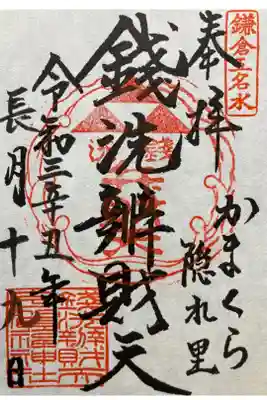 鎌倉五名水
奉拝
かまくら
隠れ里
銭洗辨財天
令和三辛丑年
長月十九日